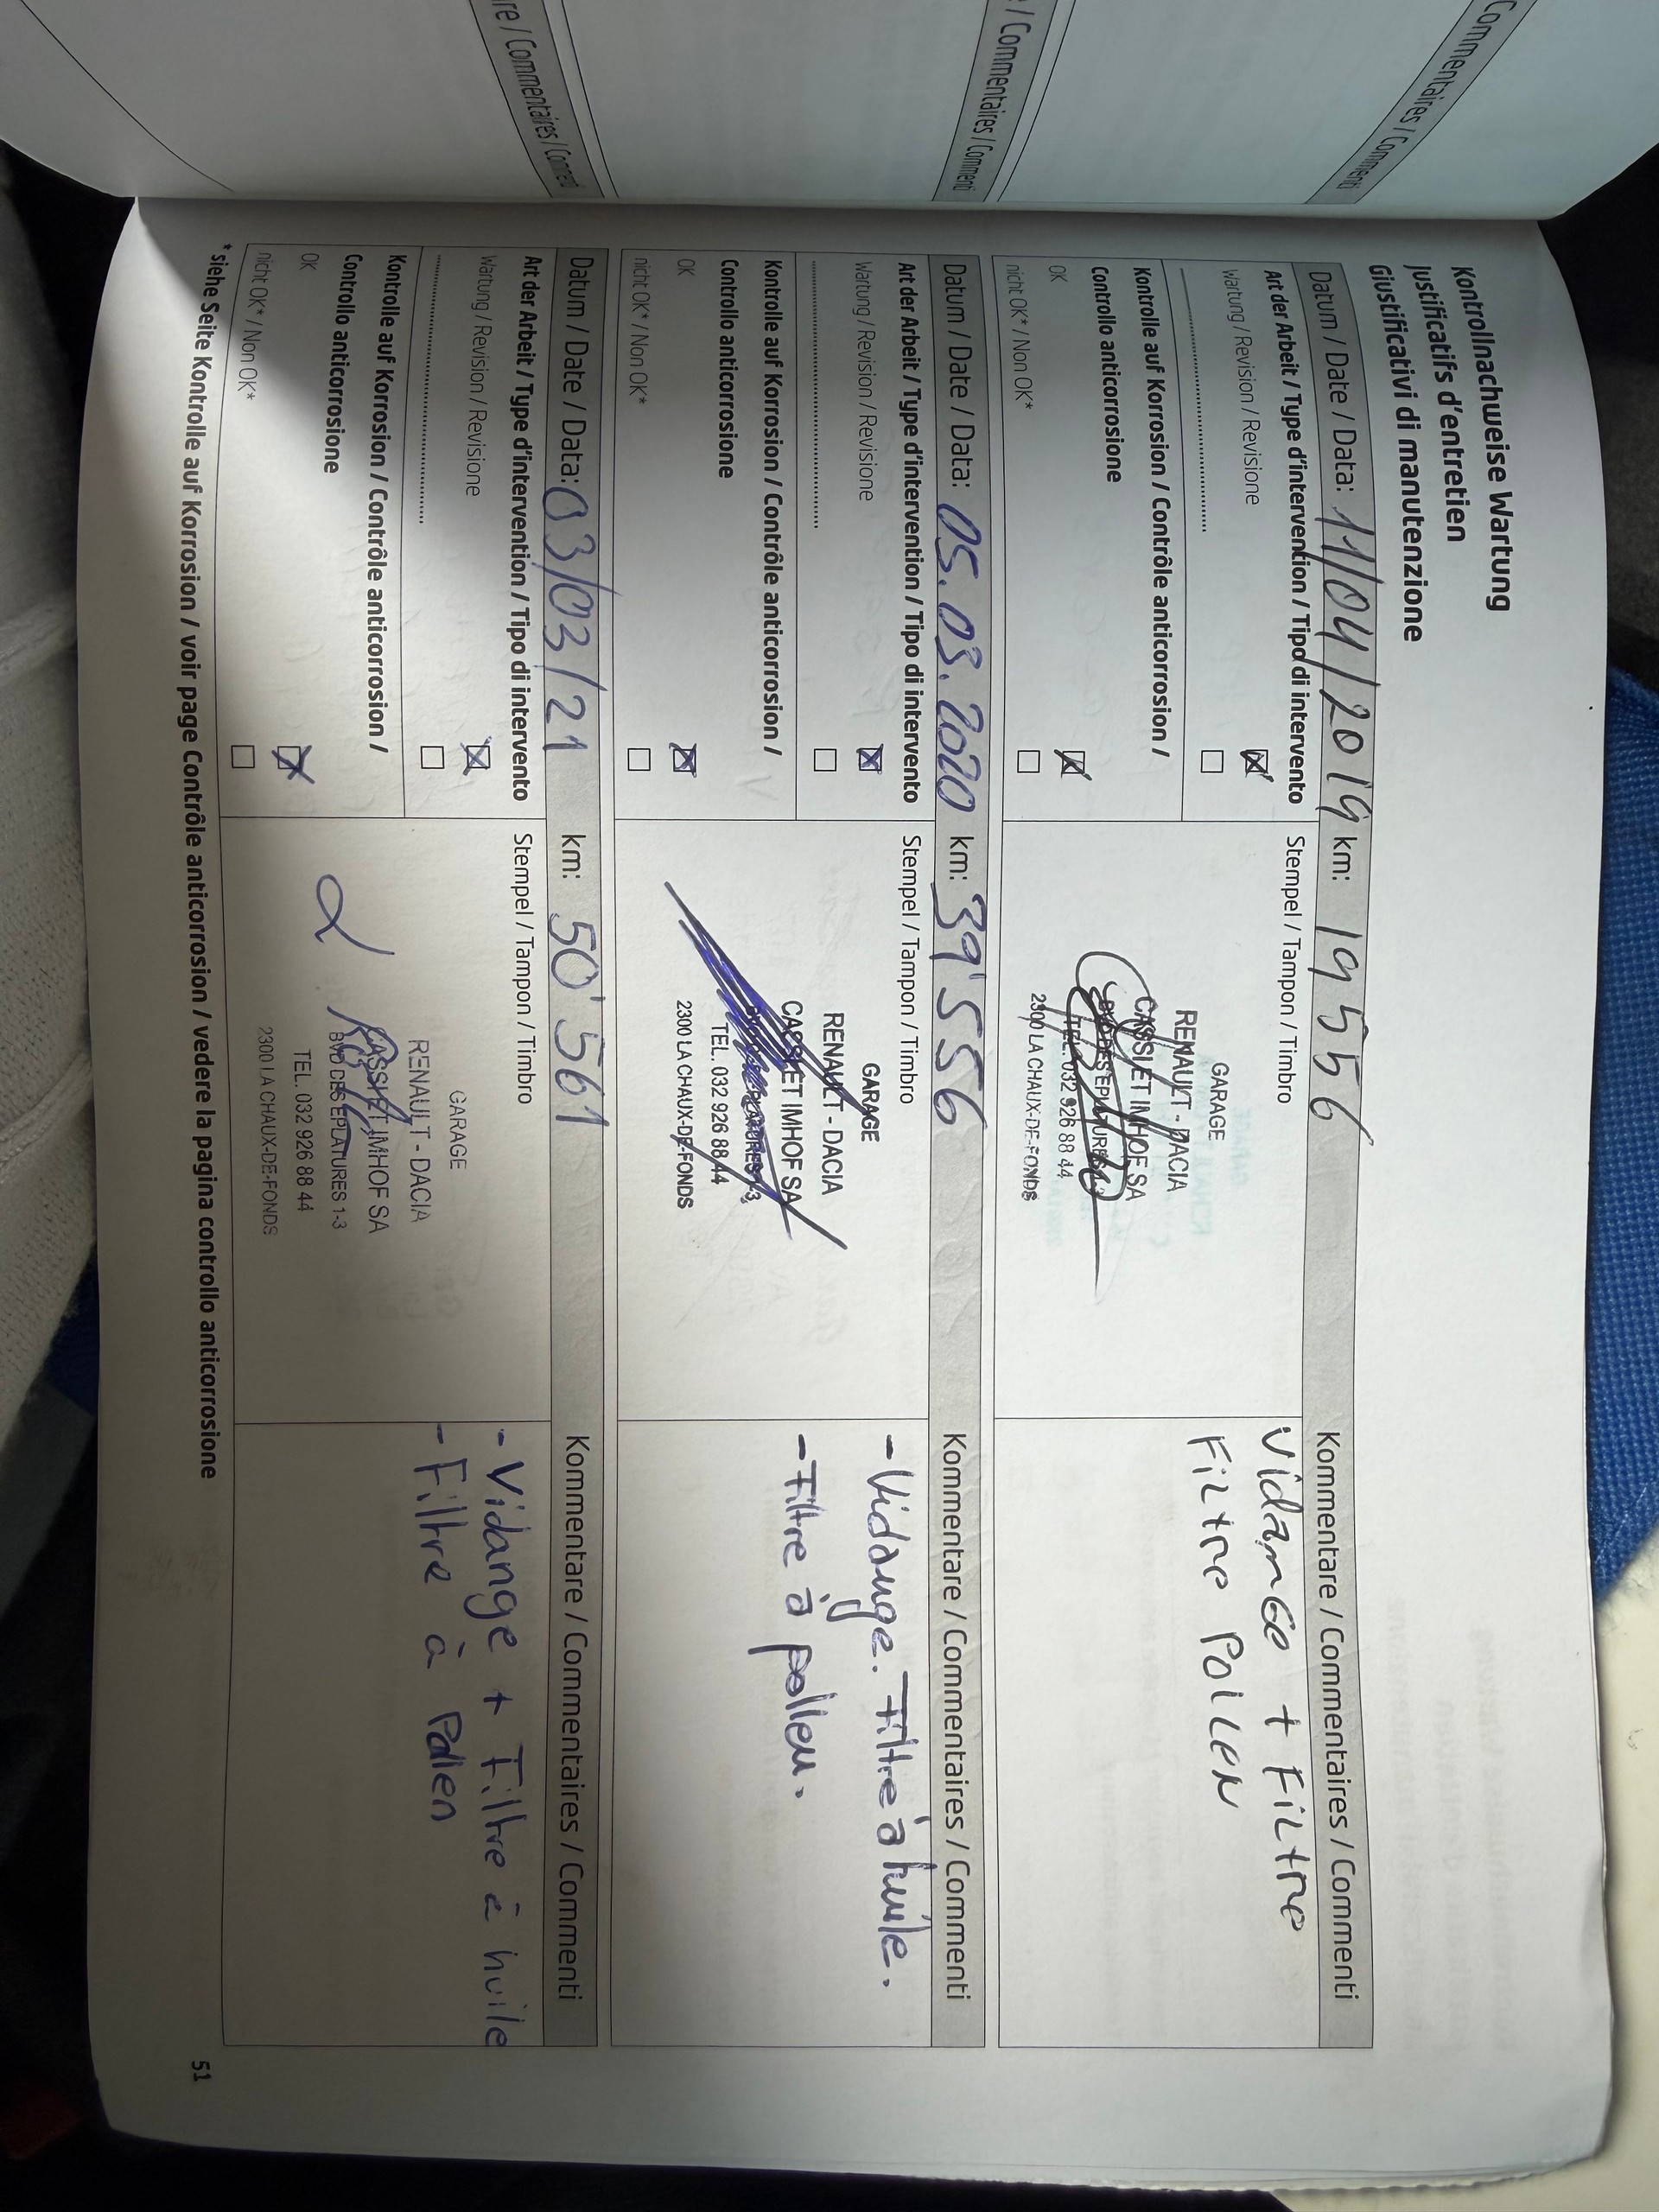 Kontrollnachweise Wartung
Justificatifs d'entretien
Giustificativi di manutenzione
Datum / Date / Data: 11/04/2019 km: 19556 Kommentare / Commentaires / Commenti
Art der Arbeit / Type d'intervention / Tipo di intervento
Wartung / Revision / Revisione
Kontrolle auf Korrosion / Contrôle anticorrosion /
Controllo anticorrosione
OK
nicht OK* / Non OK*
Stempel / Tampon / Timbro
GARAGE
RENAULT - DACIA
CASSI ET IMHOF SA
BVD DES EPLATURES
TEL. 032 926 88 44
2300 LA CHAUX-DE-FONDS
Vidange + Filtre
Filtre Pollen
Datum / Date / Data: 05.03.2020 km: 39'556 Kommentare / Commentaires / Commenti
Art der Arbeit / Type d'intervention / Tipo di intervento
Wartung / Revision / Revisione
Kontrolle auf Korrosion / Contrôle anticorrosion /
Controllo anticorrosione
OK
nicht OK* / Non OK*
Stempel / Tampon / Timbro
GARAGE
RENAULT - DACIA
CASSI ET IMHOF SA
TEL. 032 926 88 44
2300 LA CHAUX-DE-FONDS
- Vidange. Filtre à huile.
- Filtre à pollen.
Datum / Date / Data: 03/03/21 km: 50'561 Kommentare / Commentaires / Commenti
Art der Arbeit / Type d'intervention / Tipo di intervento
Wartung / Revision / Revisione
Kontrolle auf Korrosion / Contrôle anticorrosion /
Controllo anticorrosione
OK
nicht OK* / Non OK*
Stempel / Tampon / Timbro
GARAGE
RENAULT - DACIA
CASSI ET IMHOF SA
BVD DES EPLATURES 1-3
TEL. 032 926 88 44
2300 LA CHAUX-DE-FONDS
- Vidange + Filtre à huile
- Filtre à Pollen
* siehe Seite Kontrolle auf Korrosion / voir page Contrôle anticorrosion / vedere la pagina controllo anticorrosione
51
Commentaires / Commenti
/ Commentaires / Commenti
re / Commentaires / Commenti